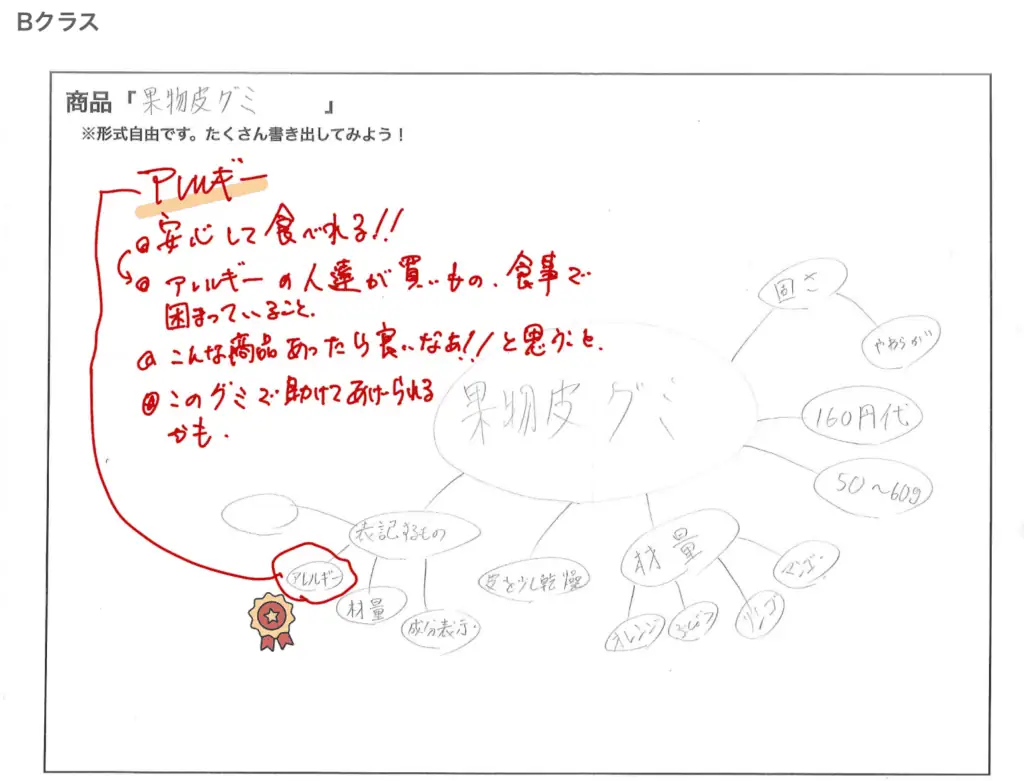 Bクラス
商品「果物皮グミ 」
※形式自由です。たくさん書き出してみよう！
アレルギー
安心して食べれる!!
アレルギーの人達が買いもの、食事で
困まっていること.
こんな商品あったら良いなぁ!!と思うこと.
このグミで助けてあげられる
かも.
果物皮グミ
固さ
やわらかい
160円代
50〜60g
表記するもの
アレルギー
材量
成分表示
皮を少し乾燥
材量
オレンジ
ぶどう
リンゴ
マンゴー